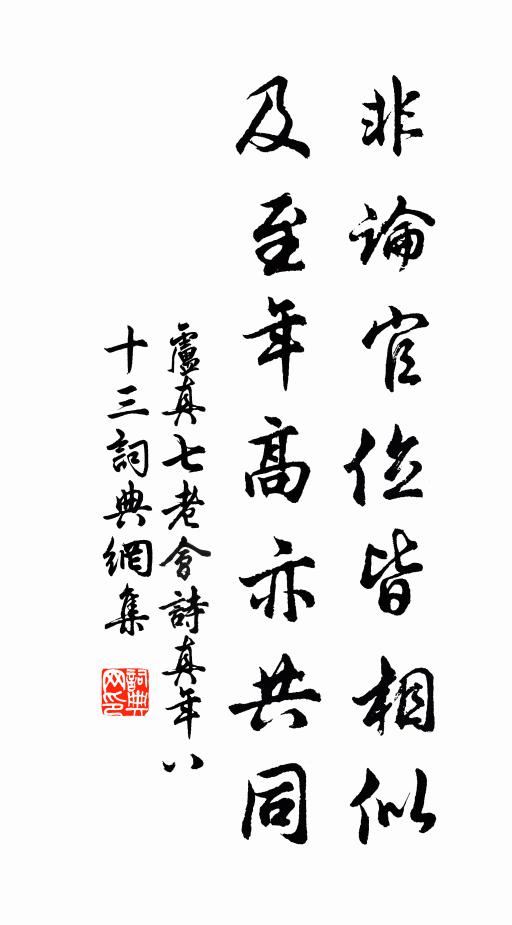 非論官位皆相似
及至年高亦共同
盧真七老會詩真年八
十三詞典網集
詞典
网印